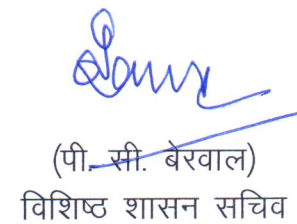 (पी. सी. बेरवाल)
विशिष्ठ शासन सचिव